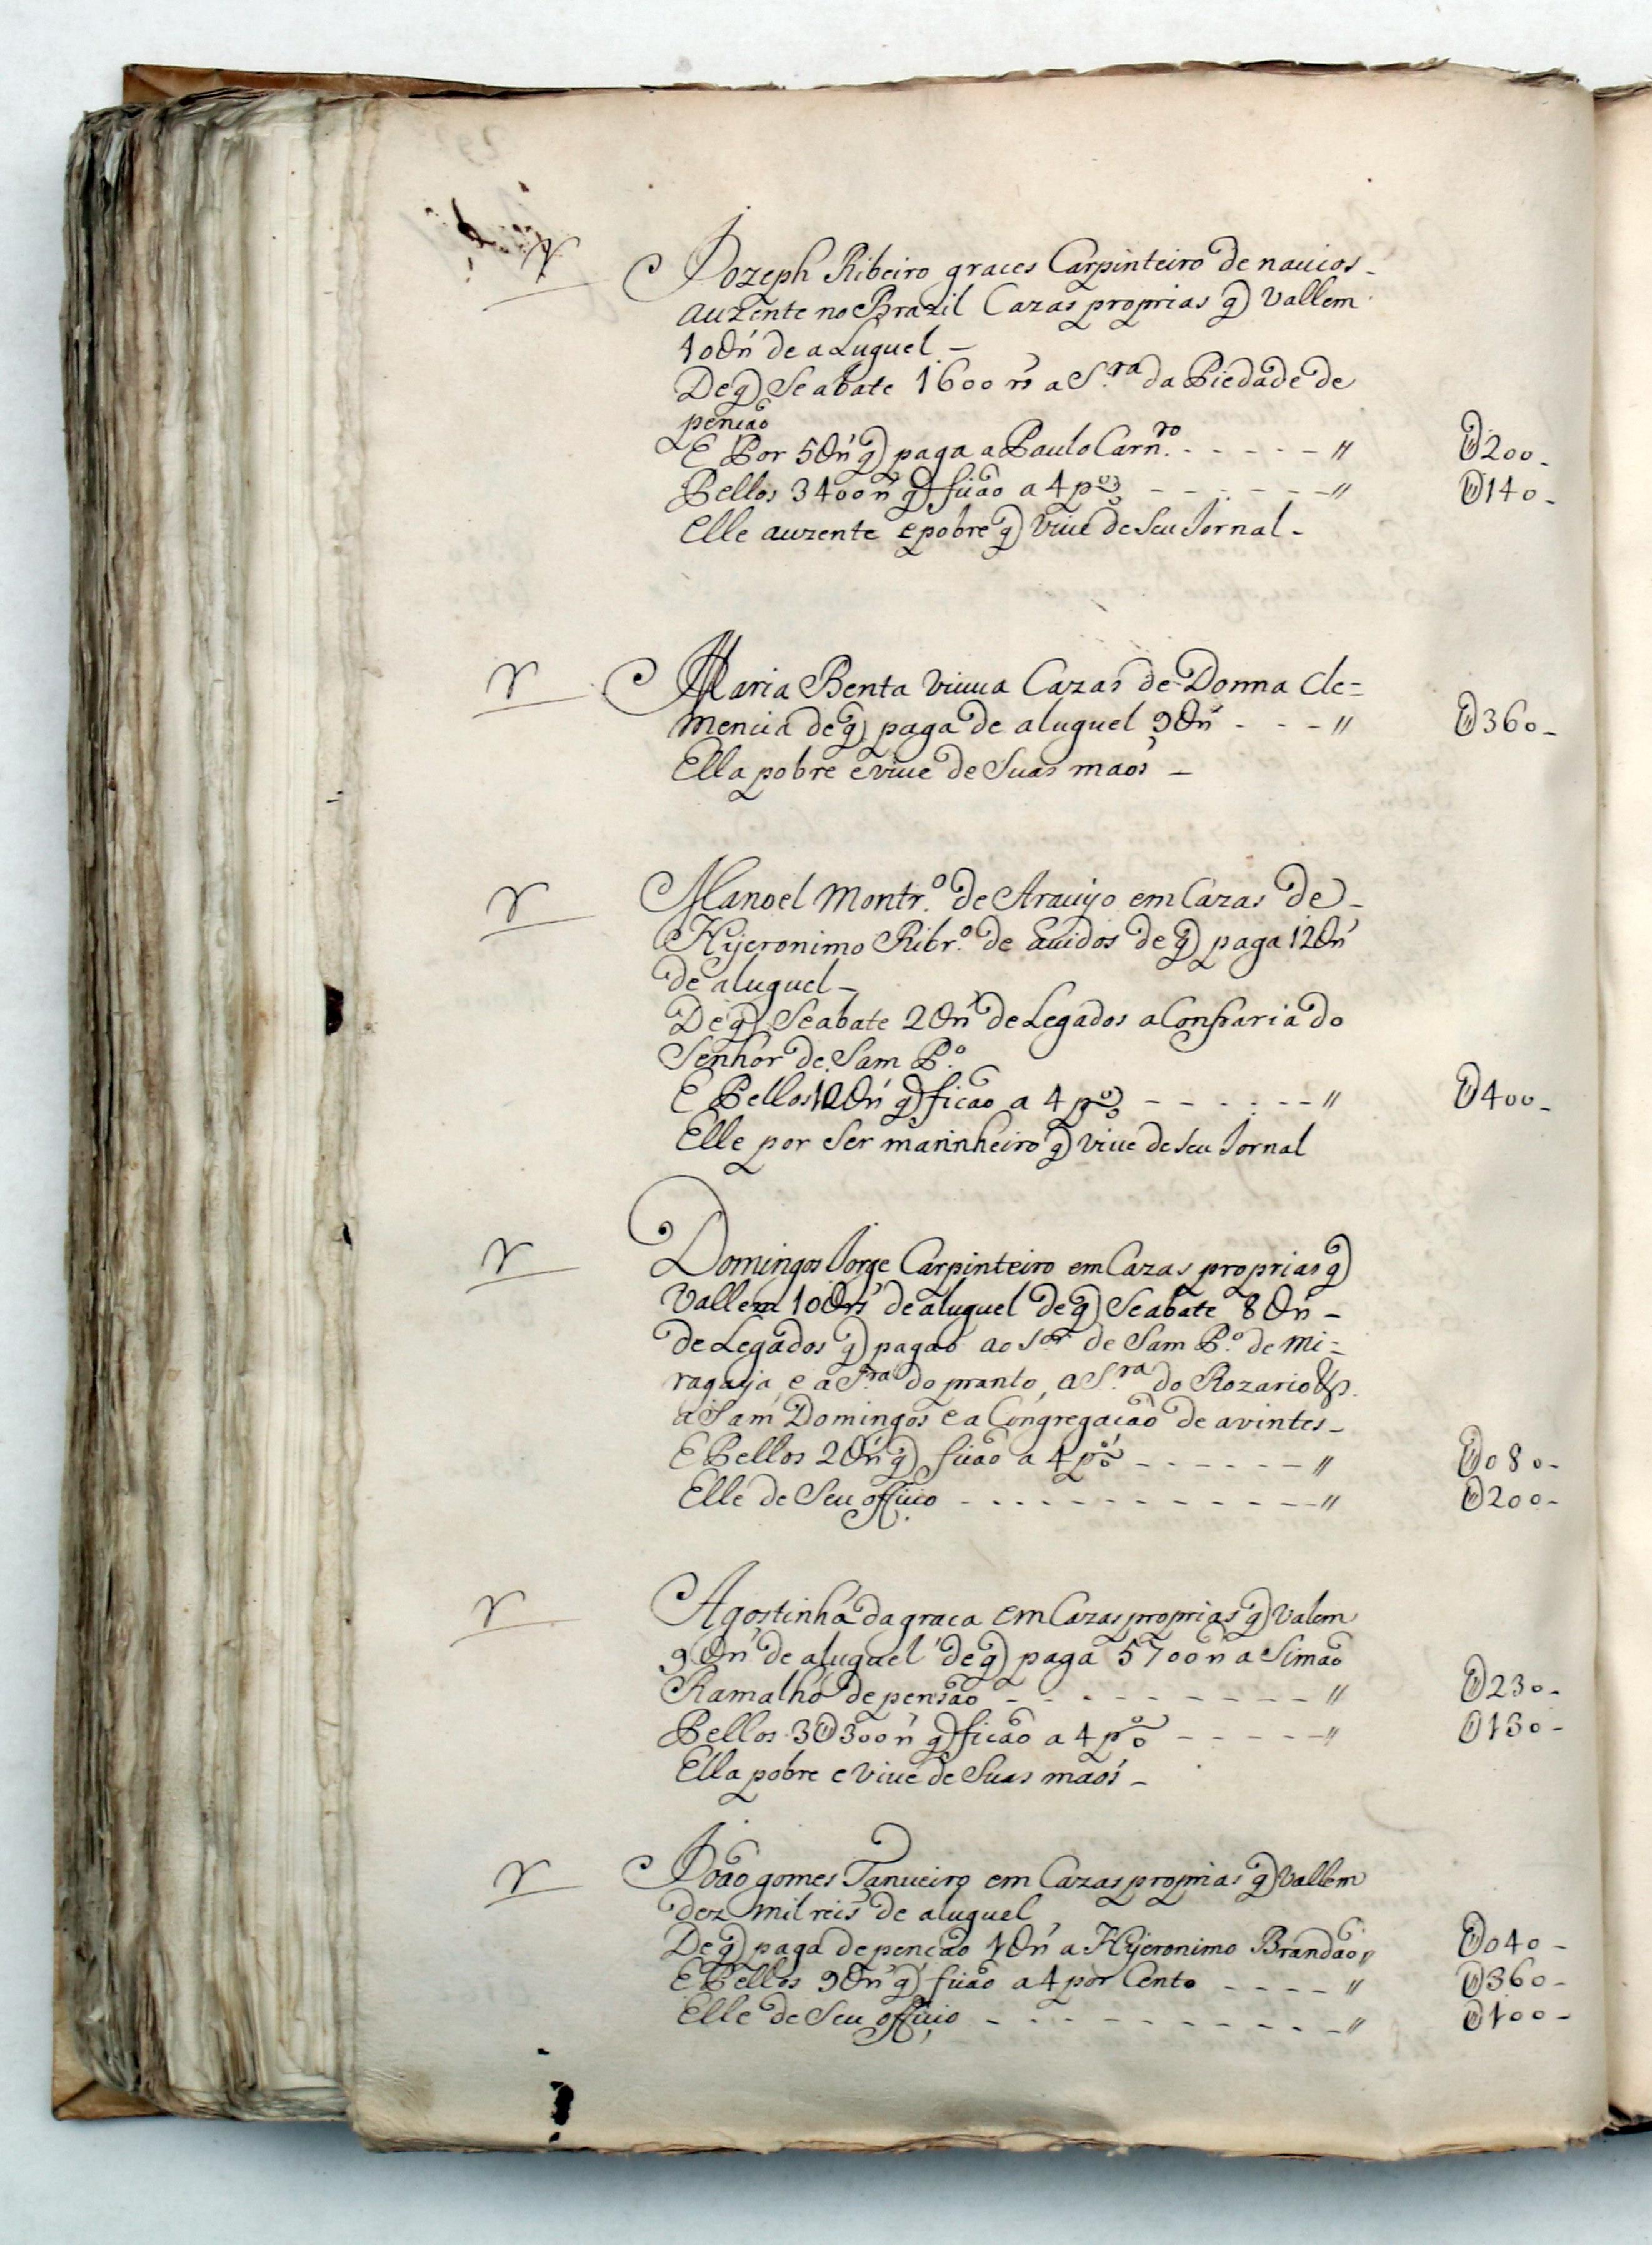 Jozeph Ribeiro graces Carpinteiro de nauios -
auzente no Brazil Cazas proprias q̃ Vallem
10U rs de aLuguel -
De q̃ Se abate 1600 rs a S.ra da Piedade de
pencão
E Por 5U rs q̃ paga a Paulo Carn.ro - - - - - // U200 -
Pellos 3400 rs q̃ ficão a 4 p.o - - - - - - // U140 -
Elle auzente e pobre q̃ Viue de Seu Jornal -
V Maria Benta Viuua Cazas de Donna Cle=
mencia de q̃ paga de aluguel 9U rs - - - // U360 -
Ella pobre e viue de Suas maos -
V Manoel Montr.o de Araujo em Cazas de -
Hyeronimo Ribr.o de Auidos de q̃ paga 12U rs
de aluguel -
De q̃ Se abate 2U rs de Legados a Confraria do
Senhor de Sam P.o
E Pellos 10U rs q̃ ficão a 4 p.o - - - - - - // U400 -
Elle por Ser marinheiro q̃ viue de seu Jornal
V Domingos Jorge Carpinteiro em Cazas proprias q̃
Vallem 10U rs de aluguel de q̃ Se abate 8U rs -
de Legados q̃ pagão ao S.or de Sam P.o de Mi=
ragaya, e a S.ra do pranto, a S.ra do Rozario &
a Sam Domingos e a Congregacão de avintes -
E Pellos 2U rs q̃ ficão a 4 p.o - - - - - - // U080 -
Elle de Seu officio - - - - - - - - - - - // U200 -
V Agostinha da graca em Cazas proprias q̃ Valem
9U rs de aluguel de q̃ paga 5700 rs a Simão
Ramalho de pensão - - - - - - - - - // U230 -
Pellos 3U300 rs q̃ ficão a 4 p.o - - - - - // U130 -
Ella pobre e Viue de Suas maos -
V João gomes Tanueiro em Cazas proprias q̃ Vallem
dez mil reis de aluguel
De q̃ paga de pencão 1U rs a Hyeronimo Brandão // U040 -
E Pellos 9U rs q̃ ficão a 4 por Cento - - - - // U360 -
Elle de Seu officio - - - - - - - - - - // U100 -